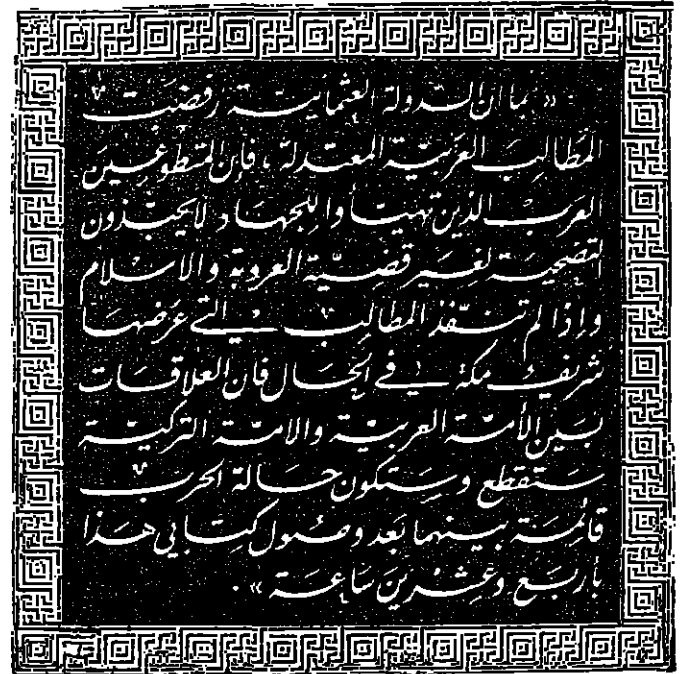 « بما ان الدولة العثمانية رفضت
المطالب العربية المعتدلة ، فإن المتطوعين
العرب الذين تهيأوا للجهاد لا يحبذون
التضحية لغير قضية العروبة والاسلام
وإذا لم تنفذ المطالب التي عرضها
شريف مكة في الحال فان العلاقات
بين الأمة العربية والامة التركية
ستقطع وستكون حالة الحرب
قائمة بينهما بعد وصول كتابي هذا
بأربع وعشرين ساعة » .